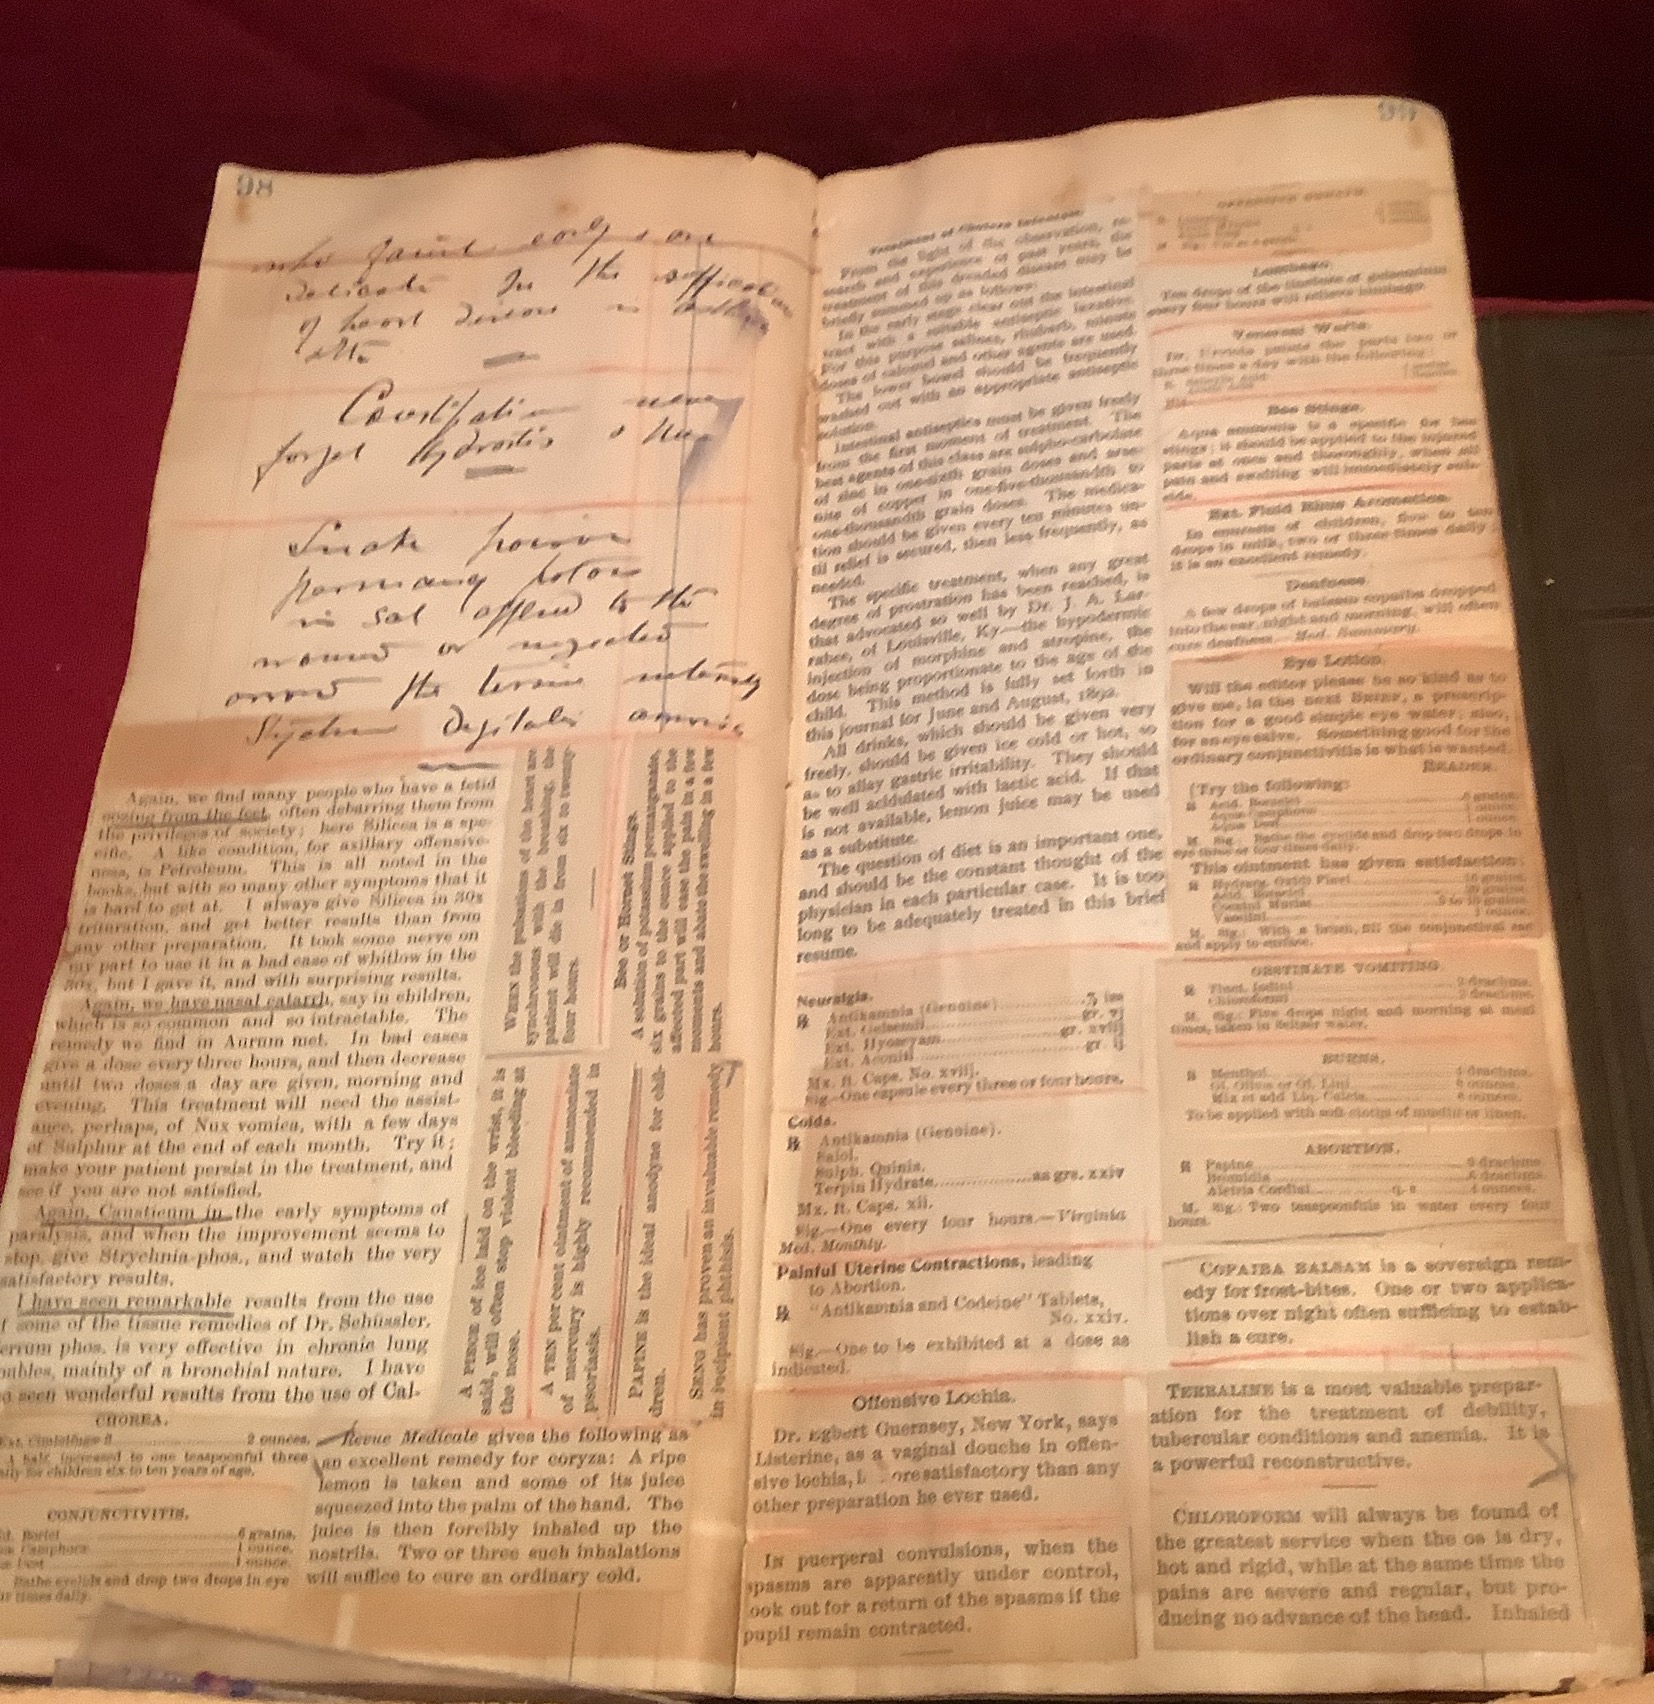 98
who faint early & are
delicate In the
of heart disease is

Constipation never
forget Hydrastis

Snake poison
in sol applied to the
wound or
the
System Digitalis
Again, we find many people who have a fetid
oozing from the feet, often debarring them from
the privileges of society; here Silicea is a spe-
cific. A like condition, for axillary offensive-
ness, is Petroleum. This is all noted in the
books, but with so many other symptoms that it
is hard to get at. I always give Silicea in 30x
trituration, and get better results than from
any other preparation. It took some nerve on
my part to use it in a bad case of whitlow in the
30x, but I gave it, and with surprising results.
Again, we have nasal catarrh, say in children,
which is so common and so intractable. The
remedy we find in Aurum met. In bad cases
give a dose every three hours, and then decrease
until two doses a day are given, morning and
evening. This treatment will need the assist-
ance, perhaps, of Nux vomica, with a few days
of Sulphur at the end of each month. Try it;
make your patient persist in the treatment, and
see if you are not satisfied.
Again, Causticum in the early symptoms of
paralysis, and when the improvement seems to
stop, give Strychnia-phos., and watch the very
satisfactory results.
I have seen remarkable results from the use
of some of the tissue remedies of Dr. Schüssler.
errum phos. is very effective in chronic lung
oubles, mainly of a bronchial nature. I have
o seen wonderful results from the use of Cal-
CHOREA.
2 ounces.
increased to one teaspoonful three
for children six to ten years of age.
CONJUNCTIVITIS.
6 grains.
1 ounce.
1 ounce.
Bathe eyelids and drop two drops in eye
times daily.
WHEN the pulsations of the heart are
synchronous with the breathing, the
patient will die in from six to twenty-
four hours.
Bee or Hornet Stings.
A solution of potassium permanganate,
six grains to the ounce applied to the
affected part will ease the pain in a few
moments and abate the swelling in a few
hours.
A PIECE of ice laid on the wrist, it is
said, will often stop violent bleeding at
the nose.
A TEN per cent ointment of ammoniate
of mercury is highly recommended in
psoriasis.
PAPINE is the ideal anodyne for chil-
dren.
SENG has proven an invaluable remedy
in incipient phthisis.
Revue Medicale gives the following as
an excellent remedy for coryza: A ripe
lemon is taken and some of its juice
squeezed into the palm of the hand. The
juice is then forcibly inhaled up the
nostrils. Two or three such inhalations
will suffice to cure an ordinary cold.
Treatment of Cholera Infantum
From the light of the observation, re-
search and experience of past years, the
treatment of this dreaded disease may be
briefly summed up as follows:
In the early stage clear out the intestinal
tract with a suitable antiseptic laxative.
For this purpose salines, rhubarb, minute
doses of calomel and other agents are used.
The lower bowel should be frequently
washed out with an appropriate antiseptic
solution.
Intestinal antiseptics must be given freely
from the first moment of treatment. The
best agents of this class are sulpho-carbolate
of zinc in one-sixth grain doses and arse-
nite of copper in one-five-thousandth to
one-thousandth grain doses. The medica-
tion should be given every ten minutes un-
til relief is secured, then less frequently, as
needed.
The specific treatment, when any great
degree of prostration has been reached, is
that advocated so well by Dr. J. A. Lar-
rabee, of Louisville, Ky—the hypodermic
injection of morphine and atropine, the
dose being proportionate to the age of the
child. This method is fully set forth in
this journal for June and August, 1892.
All drinks, which should be given very
freely, should be given ice cold or hot, so
as to allay gastric irritability. They should
be well acidulated with lactic acid. If that
is not available, lemon juice may be used
as a substitute.
The question of diet is an important one,
and should be the constant thought of the
physician in each particular case. It is too
long to be adequately treated in this brief
resume.
Neuralgia.
℞ Antikamnia (Genuine)
Ext. Gelsemii gr. vj
Ext. Hyoscyam gr. xviij
Ext. Aconiti gr. ij
Mx. ft. Caps. No. xviij.
Sig.—One capsule every three or four hours.
Colds.
℞ Antikamnia (Genuine).
Salol.
Sulph. Quinia.
Terpin Hydrate aa grs. xxiv
Mx. ft. Caps. xii.
Sig.—One every four hours.—Virginia
Med. Monthly.
Painful Uterine Contractions, leading
to Abortion.
℞ "Antikamnia and Codeine" Tablets,
No. xxiv.
Sig.—One to be exhibited at a dose as
indicated.
Offensive Lochia.
Dr. Egbert Guernsey, New York, says
Listerine, as a vaginal douche in offen-
sive lochia, ore satisfactory than any
other preparation he ever used.
In puerperal convulsions, when the
spasms are apparently under control,
look out for a return of the spasms if the
pupil remain contracted.
Lumbago.
Ten drops of the tincture of
every four hours will relieve lumbago.
Venereal Warts.
Dr. paints the parts two or
three times a day with the following:
Bee Stings.
Aqua ammonia is a specific for bee
stings; it should be applied to the injured
parts at once and thoroughly, when all
pain and swelling will immediately sub-
side.
Ext. Fluid Rhus Aromatica.
In enuresis of children, five to ten
drops in milk, two or three times daily
it is an excellent remedy.
Deafness.
A few drops of balsam copaiba dropped
into the ear, night and morning, will often
cure deafness.—Med. Summary.
Eye Lotion.
Will the editor please be so kind as to
give me, in the next BRIEF, a prescrip-
tion for a good simple eye water; also,
for an eye salve. Something good for the
ordinary conjunctivitis is what is wanted.
READER.
[Try the following:
M. Sig. Bathe the eyelids and drop two drops in
eye three or four times daily.
This ointment has given satisfaction:
M. Sig.: With a brush, fill the conjunctival sac
and apply to surface.
OBSTINATE VOMITING.
℞ Tinct. Iodini 2 drachms.
Chloroformi 2 drachms.
M. Sig.: Five drops night and morning at meal
times, taken in Seltzer water.
BURNS.
℞ Menthol 4 drachms.
Ol. Olivæ or Ol. Lini 8 ounces.
Mix et add Liq. Calcis 8 ounces.
To be applied with soft cloths of muslin or linen.
ABORTION.
℞ Papine
Bromidia
Aletris Cordial q. s. 4 ounces.
M. Sig.: Two teaspoonfuls in water every four
hours.
COPAIBA BALSAM is a sovereign rem-
edy for frost-bites. One or two applica-
tions over night often sufficing to estab-
lish a cure.
TERRALINE is a most valuable prepar-
ation for the treatment of debility,
tubercular conditions and anemia. It is
a powerful reconstructive.
CHLOROFORM will always be found of
the greatest service when the os is dry,
hot and rigid, while at the same time the
pains are severe and regular, but pro-
ducing no advance of the head. Inhaled